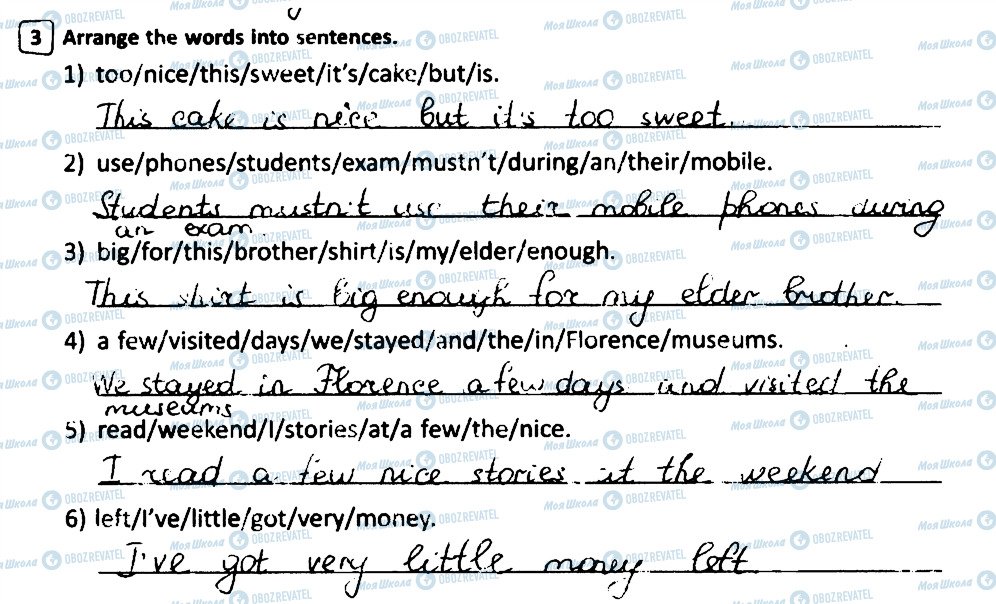 3 Arrange the words into sentences.
1) too/nice/this/sweet/it's/cake/but/is.
This cake is nice but it's too sweet.
2) use/phones/students/exam/mustn't/during/an/their/mobile.
Students mustn't use their mobile phones during
an exam.
3) big/for/this/brother/shirt/is/my/elder/enough.
This shirt is big enough for my elder brother.
4) a few/visited/days/we/stayed/and/the/in/Florence/museums.
We stayed in Florence a few days and visited the
museums
5) read/weekend/I/stories/at/a few/the/nice.
I read a few nice stories at the weekend
6) left/I've/little/got/very/money.
I've got very little money left
Моя Школа OBOZREVATEL